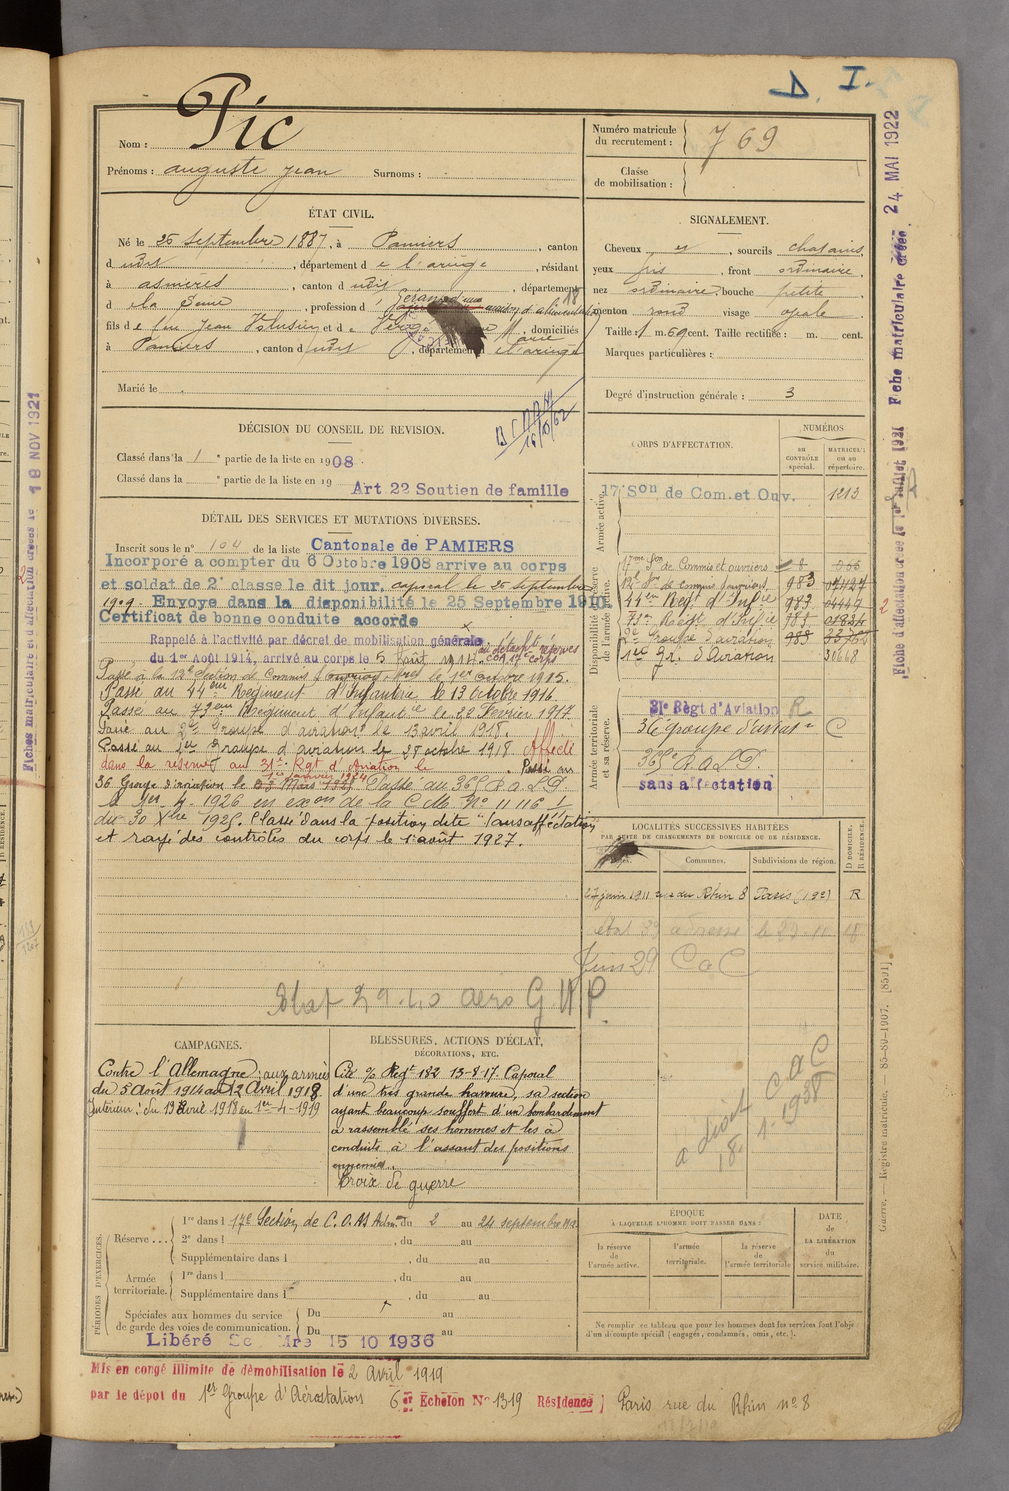 D. I.
Nom : Pic
Prénoms : auguste jean Surnoms :
Numéro matricule
du recrutement : 769
Classe
de mobilisation :
ÉTAT CIVIL.
Né le 25 Septembre 1887, à Pamiers, canton
d udit, département d e l'ariège, résidant
à asnières, canton d udit, département
d e la Seine, profession d
fils d e feu Jean et d e , domiciliés
à Pamiers, canton d udit, département d e l'ariège
Marié le
SIGNALEMENT.
Cheveux et, sourcils chatains
yeux gris, front ordinaire,
nez ordinaire, bouche petite
menton rond visage opale
Taille : 1 m. 69 cent. Taille rectifiée : m. cent.
Marques particulières :
Degré d'instruction générale : 3
DÉCISION DU CONSEIL DE REVISION.
Classé dans la 1e partie de la liste en 1908.
Classé dans la e partie de la liste en 19
Art 22 Soutien de famille
16/10/62
DÉTAIL DES SERVICES ET MUTATIONS DIVERSES.
Inscrit sous le n° 104 de la liste Cantonale de PAMIERS
Incorporé a compter du 6 Octobre 1908 arrive au corps
et soldat de 2e classe le dit jour, caporal le 25 septembre
1909. Envoye dans la disponibilité le 25 Septembre 1910.
Certificat de bonne conduite accorde
Rappelé à l'activité par décret de mobilisation générale
du 1er Août 1914, arrivé au corps le 5 août 1914.
Passé à la 12e Section de Commis Ouvriers le 1er octobre 1915.
Passé au 44ème Régiment d'Infanterie le 13 Octobre 1916.
Passé au 73ème Régiment d'Infanterie le 22 Février 1917.
Passé au 2e Groupe d'aviation le 13 avril 1918.
Passé au 1er Groupe d'aviation le 28 octobre 1918 Affecté
dans la réserve au 31e Rgt d'Aviation le Passé au
1er janvier 1924
36 Groupe d'aviation le Passé au 365 R.a.L.P.
le 1er 4. 1926 en exon de la C.M. No 11116 1
du 30 Xbre 1925. Classé dans la position dite "sans affectation"
et rayé des contrôles du corps le 1 août 1927.
Etat 29.40 aero G.U.P
CORPS D'AFFECTATION.
NUMÉROS
au
CONTRÔLE
spécial.
MATRICULE
ou au
répertoire.
Armée active.
17e Son de Com. et Ouv. 1213
Disponibilité et réserve
de l'armée active.
17ème Son de Commis et ouvriers
12e Son de commis ouvriers 983 07427
44ème Régt d'Infie 983 04449
73ème Régt d'Infie 983
2e Groupe d'aviation 983
1er Gr. d'Aviation 30668
Armée territoriale
et sa réserve.
31e Régt d'Aviation R
36e groupe d'aviat° C
365 R.a.L.P.
sans affectation
LOCALITÉS SUCCESSIVES HABITÉES
PAR SUITE DE CHANGEMENTS DE DOMICILE OU DE RÉSIDENCE.
Communes. Subdivisions de région.
D DOMICILE.
R RÉSIDENCE.
27 juin 1911 rue du Rhin 8 Paris (19e) R
état 39 adresse le 29.10. 18
Juin 29 CaC
a droit C.a.C
18. 1. 1938
CAMPAGNES.
Contre l'Allemagne : aux armées
du 5 Août 1914 au 12 Avril 1918.
Intérieur : du 13 avril 1918 au 1er-4-1919
BLESSURES, ACTIONS D'ÉCLAT,
DÉCORATIONS, ETC.
Cité o/ Regt 182 13-8-17. Caporal
d'une très grande bravoure, sa section
ayant beaucoup souffert d'un bombardement
a rassemblé ses hommes et les a
conduits à l'assaut des positions
ennemies.
Croix de guerre
PÉRIODES D'EXERCICES.
Réserve ...
1re dans l 17e Section de C.O.A. du 2 au 24 septembre
2e dans l , du au
Supplémentaire dans l , du au
Armée
territoriale.
1re dans l , du au
Supplémentaire dans l , du au
Spéciales aux hommes du service
de garde des voies de communication.
Du au
Du au
Libéré 15 10 1936
ÉPOQUE
À LAQUELLE L'HOMME DOIT PASSER DANS :
la réserve
de l'armée active.
l'armée
territoriale.
la réserve
de l'armée territoriale
DATE
de
LA LIBÉRATION
du
service militaire.
Ne remplir ce tableau que pour les hommes dont les services font l'objet
d'un décompte spécial (engagés, condamnés, omis, etc.).
Mis en congé illimité de démobilisation le 2 avril 1919
par le dépôt du 1er Groupe d'Aérostation 6e Echelon N° 1319 Résidence : Paris rue du Rhin n° 8
Fiche matriculaire créée 24 MAI 1922
Fiche d'affectation créée le 1er Juillet 1921
Guerre. — Registre matricule. — 85-89-1907. [8591]
Fiches matriculaire et d'affectation créées le 18 NOV 1921